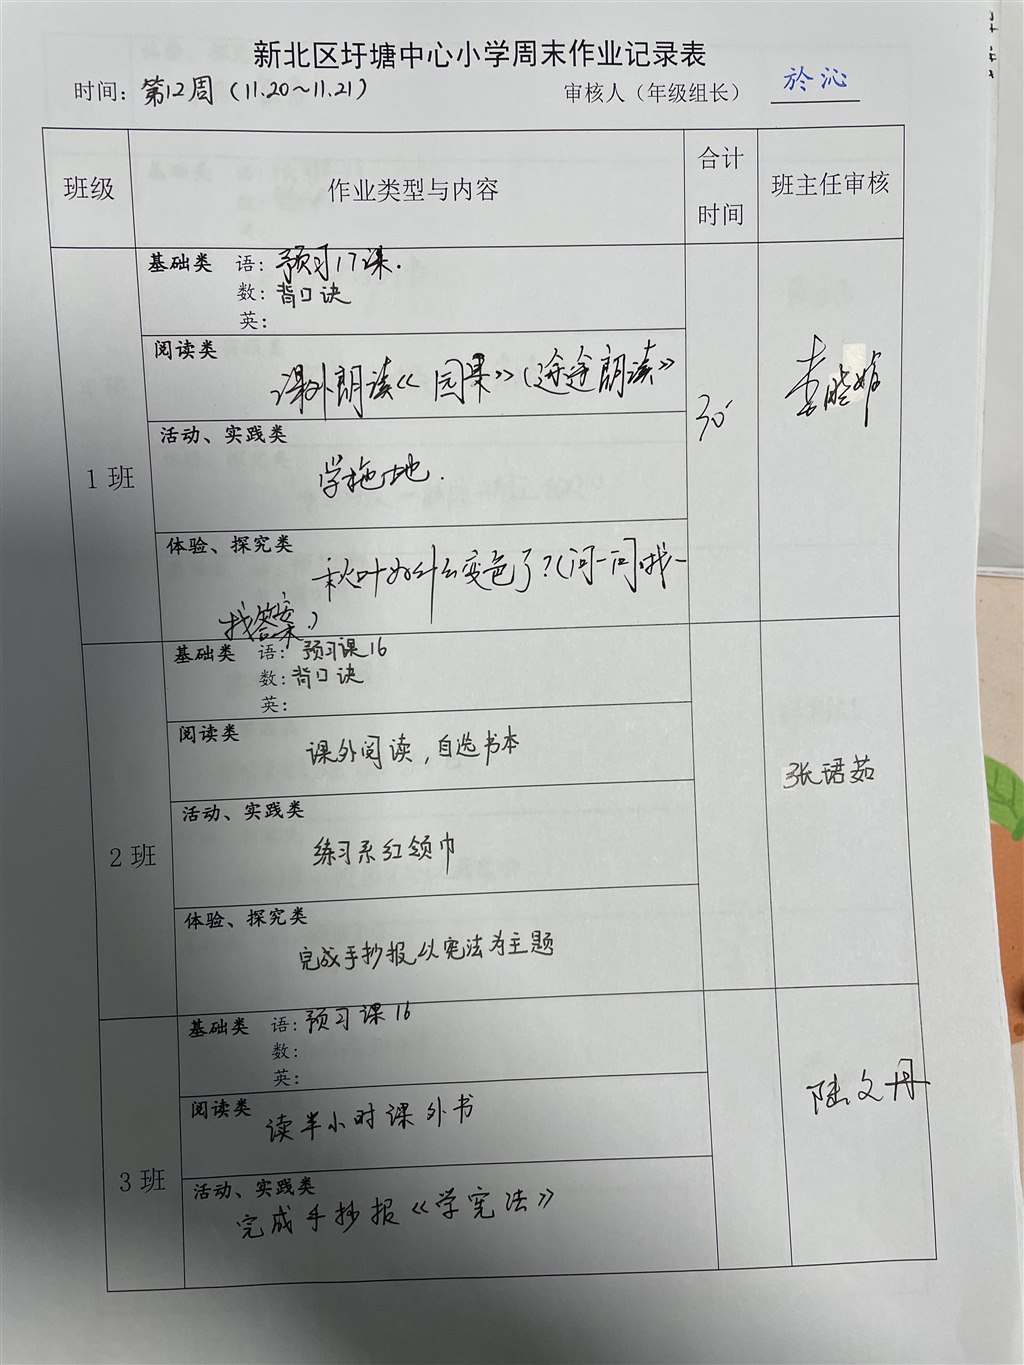 新北区圩塘中心小学周末作业记录表
时间：第12周（11.20～11.21） 审核人（年级组长） 於沁
班级 作业类型与内容 合计时间 班主任审核
1班
基础类 语：预习17课.
数：背口诀
英：
阅读类
课外朗读《 》（ 朗读》
活动、实践类
学拖地.
体验、探究类
秋叶为什么变色了？（问一问，找一
找答案）
30′
李晓
2班
基础类 语：预习课16
数：背口诀
英：
阅读类
课外阅读，自选书本
活动、实践类
练习系红领巾
体验、探究类
完成手抄报，以宪法为主题
张珺茹
3班
基础类 语：预习课16
数：
英：
阅读类
读半小时课外书
活动、实践类
完成手抄报《学宪法》
陆文丹